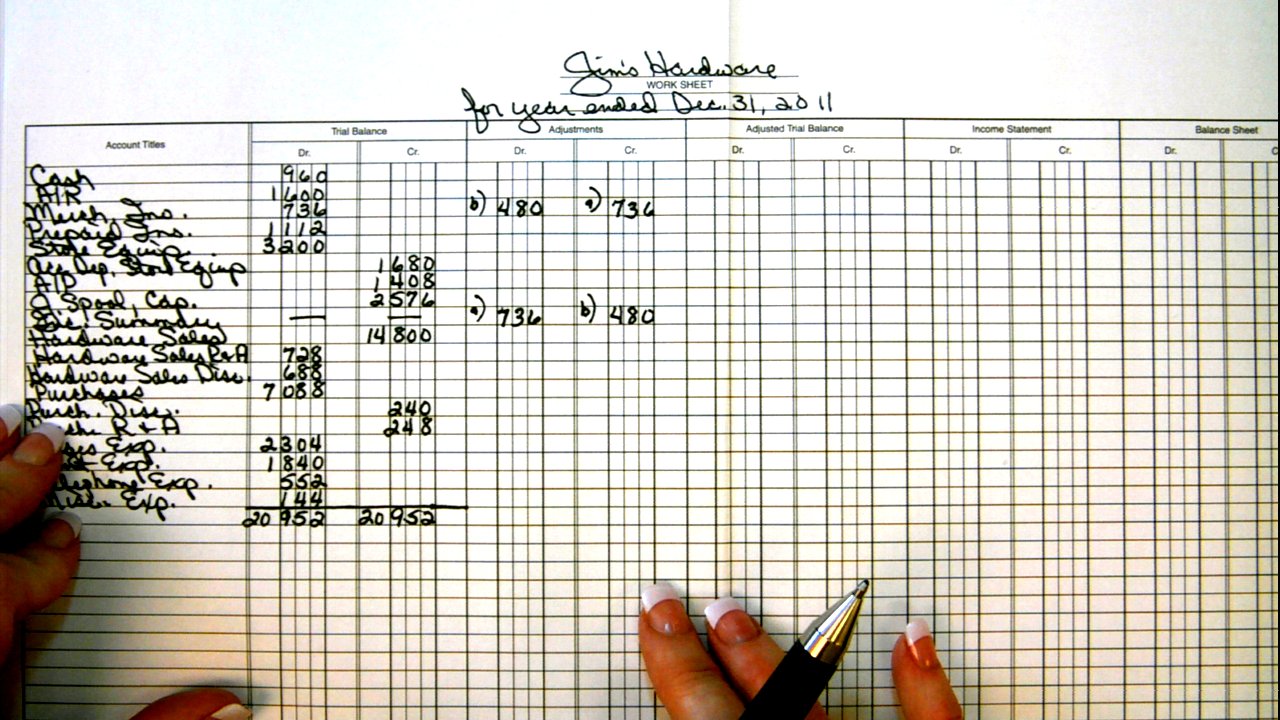 Jim's Hardware
WORK SHEET
for year ended Dec. 31, 2011
Account Titles Trial Balance Adjustments Adjusted Trial Balance Income Statement Balance Sheet
Dr. Cr. Dr. Cr. Dr. Cr. Dr. Cr. Dr. C
Cash 960
A/R 1600
Merch. Ins. 736 b) 480 a) 736
Prepaid Ins. 1112
Store Equip. 3200
Acc. Dep. Store Equip 1680
A/P 1408
Q. Spool, Cap. 2576
Inc. Summary — — a) 736 b) 480
Hardware Sales 14800
Hardware Sales R+A 728
Hardware Sales Disc. 688
Purchases 7088
Purch. Disc. 240
R + A 248
Exp. 2304
Exp. 1840
Telephone Exp. 552
Misc. Exp. 144
20952 20952